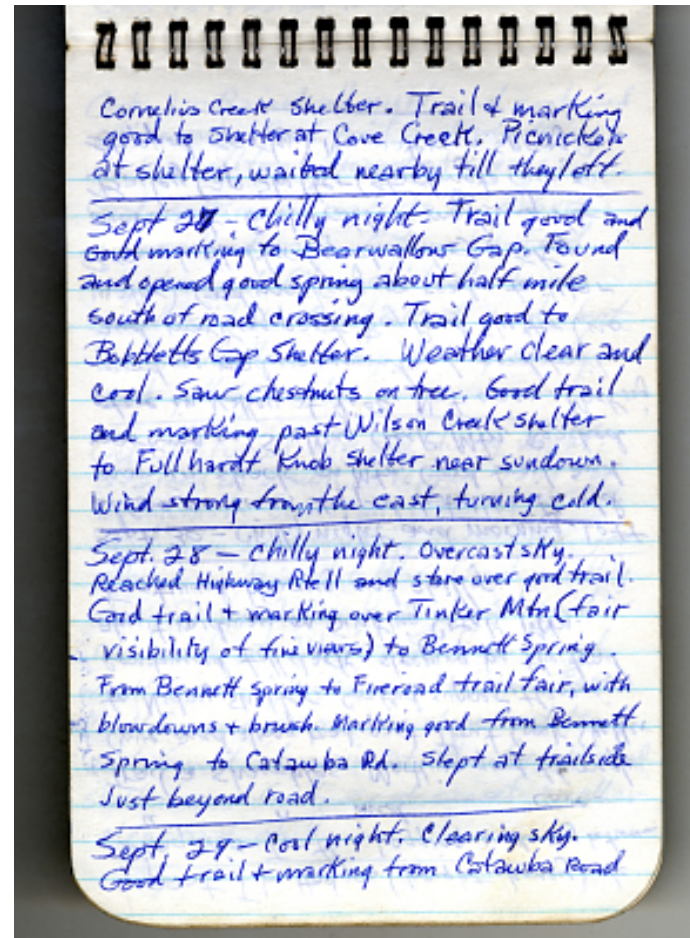 Cornelius Creek Shelter. Trail & marking
good to shelter at Cove Creek. Picnickers
at shelter, waited nearby till they left.
Sept 27 - Chilly night. Trail good and
good marking to Bearwallow Gap. Found
and opened good spring about half mile
south of road crossing. Trail good to
Bobbletts Gap Shelter. Weather clear and
cool. Saw chestnuts on tree. Good trail
and marking past Wilson Creek shelter
to Fullhardt Knob shelter near sundown.
Wind strong from the east, turning cold.
Sept. 28 - Chilly night. Overcast sky.
Reached Highway Rte 11 and store over good trail.
Good trail + marking over Tinker Mtn (fair
visibility of fine views) to Bennett Spring.
From Bennett spring to Fireroad trail fair, with
blowdowns + brush. Marking good from Bennett
Spring to Catawba Rd. Slept at trailside
Just beyond road.
Sept. 29 - Cool night. Clearing sky.
Good trail + marking from Catawba Road